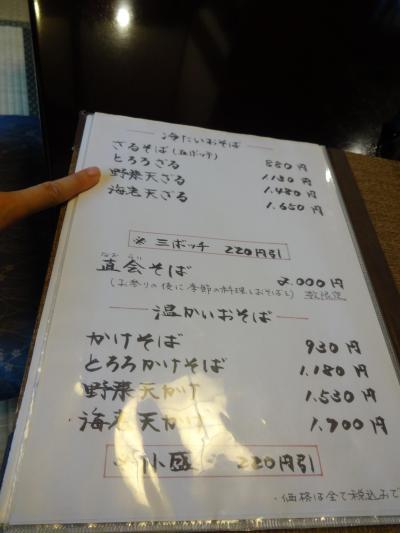 冷たいおそば
ざるそば(五ボッチ) 880円
とろろざる 1.130円
野菜天ざる 1.480円
海老天ざる 1.650円
※ 三ボッチ 220円引
なおらい
直会そば 2.000円
(お参りの後に季節の料理とおそばと) 数限定
温かいおそば
かけそば 930円
とろろかけそば 1.180円
野菜天かけ 1.530円
海老天かけ 1.700円
※ 小盛 220円引
・価格は全て税込みで